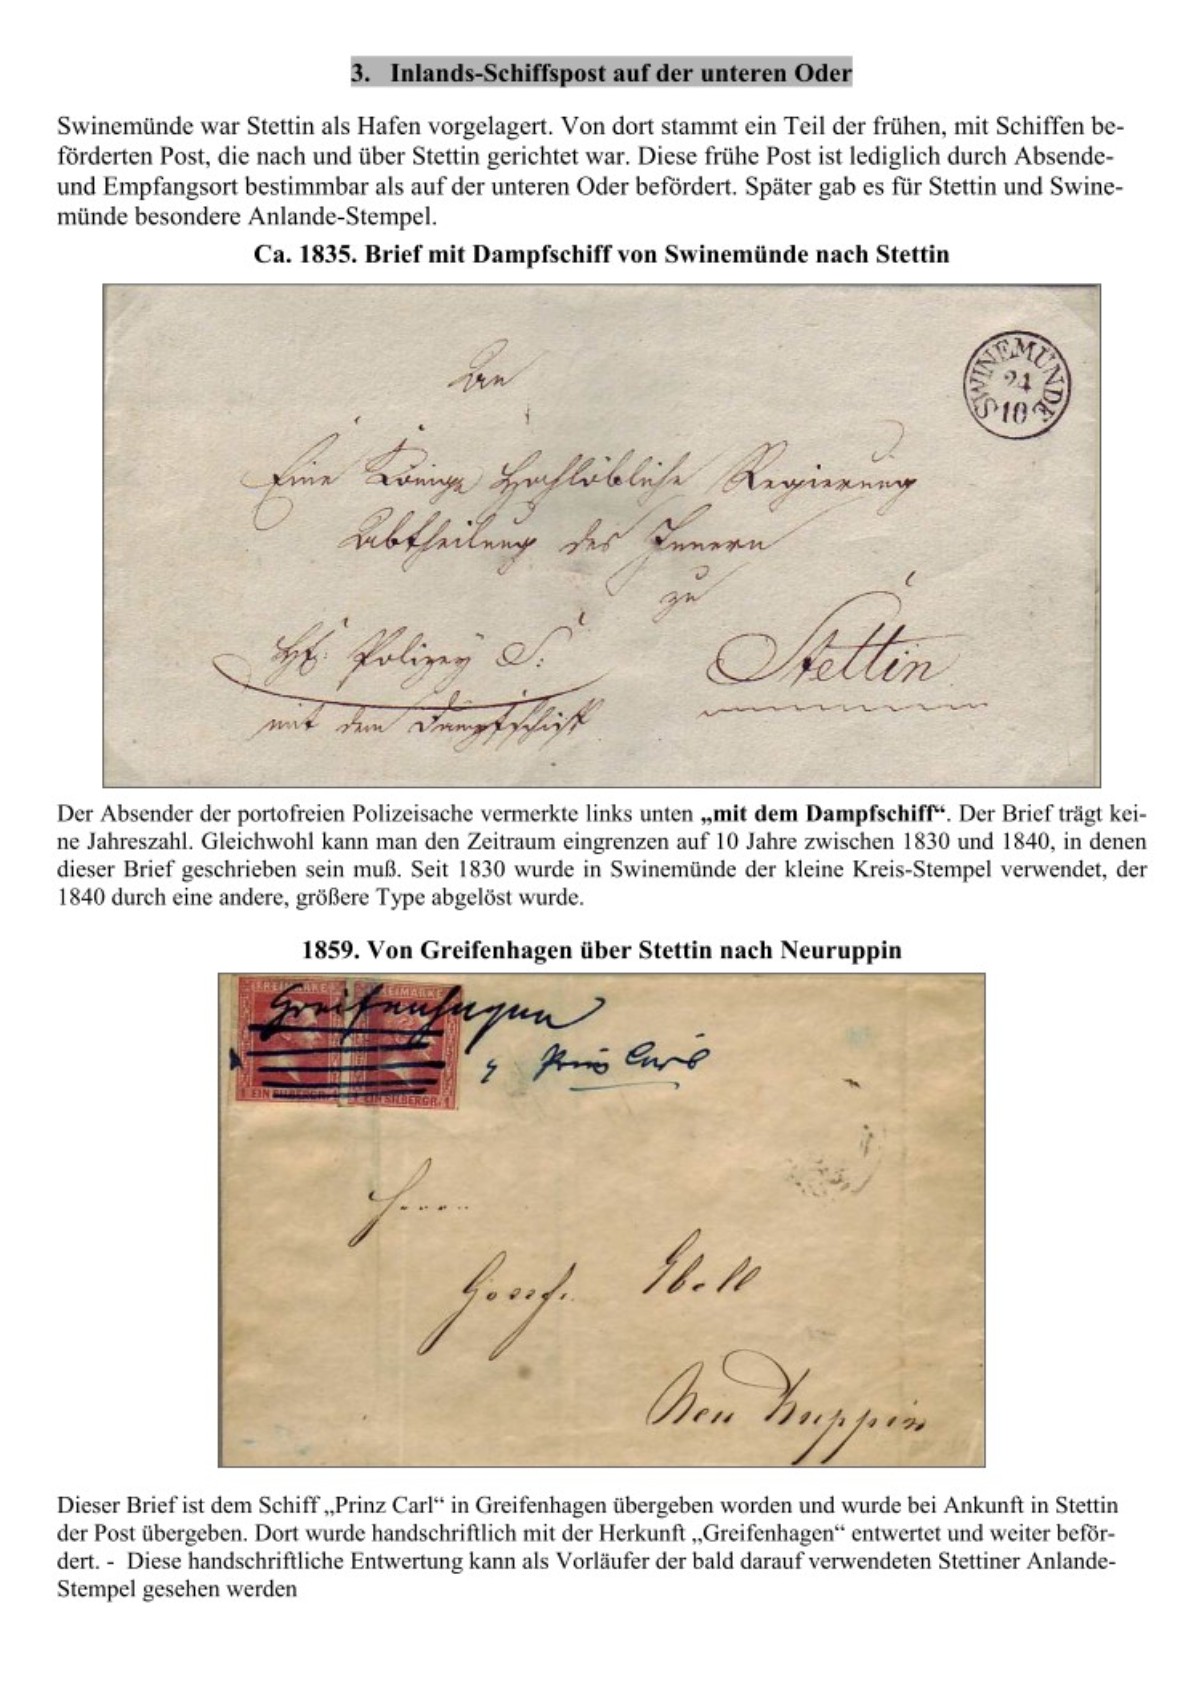 3. Inlands-Schiffspost auf der unteren Oder
Swinemünde war Stettin als Hafen vorgelagert. Von dort stammt ein Teil der frühen, mit Schiffen be-
förderten Post, die nach und über Stettin gerichtet war. Diese frühe Post ist lediglich durch Absende-
und Empfangsort bestimmbar als auf der unteren Oder befördert. Später gab es für Stettin und Swine-
münde besondere Anlande-Stempel.
Ca. 1835. Brief mit Dampfschiff von Swinemünde nach Stettin
SWINEMÜNDE
24
10
An
Eine Königl Hochlöbliche Regierung
Abtheilung des Innern
zu
Stettin
Polizey S:
mit dem Dampfschiff
Der Absender der portofreien Polizeisache vermerkte links unten „mit dem Dampfschiff“. Der Brief trägt kei-
ne Jahreszahl. Gleichwohl kann man den Zeitraum eingrenzen auf 10 Jahre zwischen 1830 und 1840, in denen
dieser Brief geschrieben sein muß. Seit 1830 wurde in Swinemünde der kleine Kreis-Stempel verwendet, der
1840 durch eine andere, größere Type abgelöst wurde.
1859. Von Greifenhagen über Stettin nach Neuruppin
FREIMARKE FREIMARKE
Greifenhagen
Prinz Carl
1 EIN SILBERGR. 1 1 EIN SILBERGR. 1
Herrn
Ebell
Neu Ruppin
Dieser Brief ist dem Schiff „Prinz Carl“ in Greifenhagen übergeben worden und wurde bei Ankunft in Stettin
der Post übergeben. Dort wurde handschriftlich mit der Herkunft „Greifenhagen“ entwertet und weiter beför-
dert. - Diese handschriftliche Entwertung kann als Vorläufer der bald darauf verwendeten Stettiner Anlande-
Stempel gesehen werden